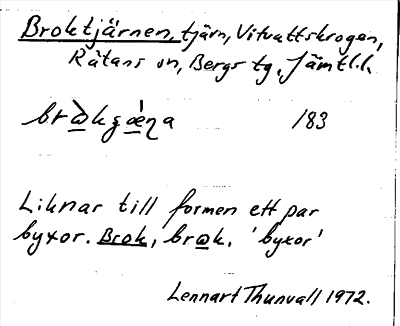 Broktjärnen, tjärn, Vitvattskrogen,
Rätans sn, Bergs tg, Jämtl.l.
183
Liknar till formen ett par
byxor. Brok, 'byxor'
Lennart Thunvall 1972.